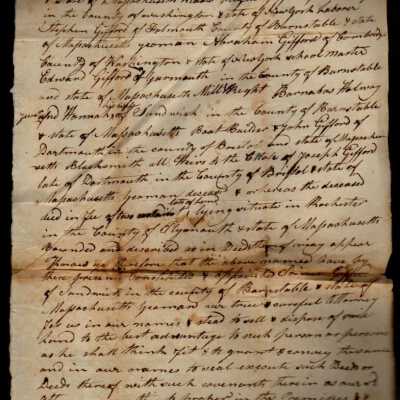 in the County of Washington & State of New York Labourer
Stephen Gifford of Falmouth County of Barnstable & State
of Massachusetts yeoman Abraham Gifford of Cambridge
County of Washington & State of New York School master
Edward Gifford of Yarmouth in the County of Barnstable
and State of Massachusetts Mill Wright Barnabas Holway
and Hannah his wife of Sandwich in the County of Barnstable
& State of Massachusetts Boat Builder & John Gifford of
Dartmouth in the County of Bristol and State of Massachu
setts Blacksmith all Heirs to the Estate of Joseph Gifford
late of Dartmouth in the County of Bristol & State of
Massachusetts yeoman deceased & whereas the deceased
died in fee of lots of land lying situate in Rochester
in the County of Plymouth & State of Massachusetts
Bounded and described as in Deeds thereof may appear
Know that the above named have by
these presents Constituted & appointed Gifford
of Sandwich in the County of Barnstable & State of
Massachusetts Yeoman our true & Attorney
for us in our names & stead to sell & dispose of said
land to the best advantage to such person or persons
as he shall think fit & to grant & convey the same
and in our names to seal execute such Deed or
Deeds thereof with such covenants therein as our
proper in the